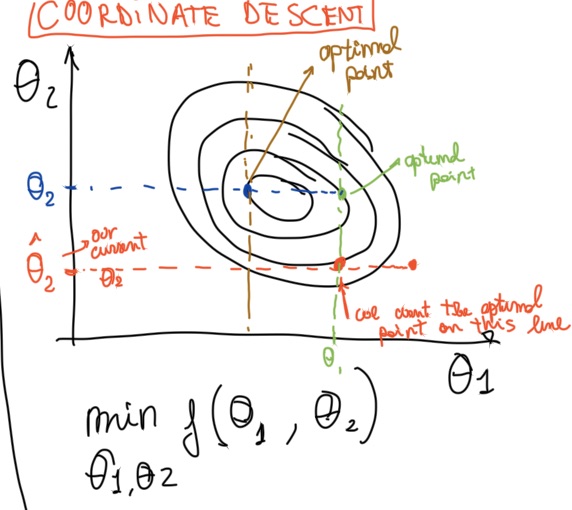 COORDINATE DESCENT
θ₂
optimal
point
optimal
point
θ₂
θ̂₂
our
current
θ₂
we want the optimal
point on this line
θ₁
θ1
min f(θ₁, θ₂)
θ1,θ2